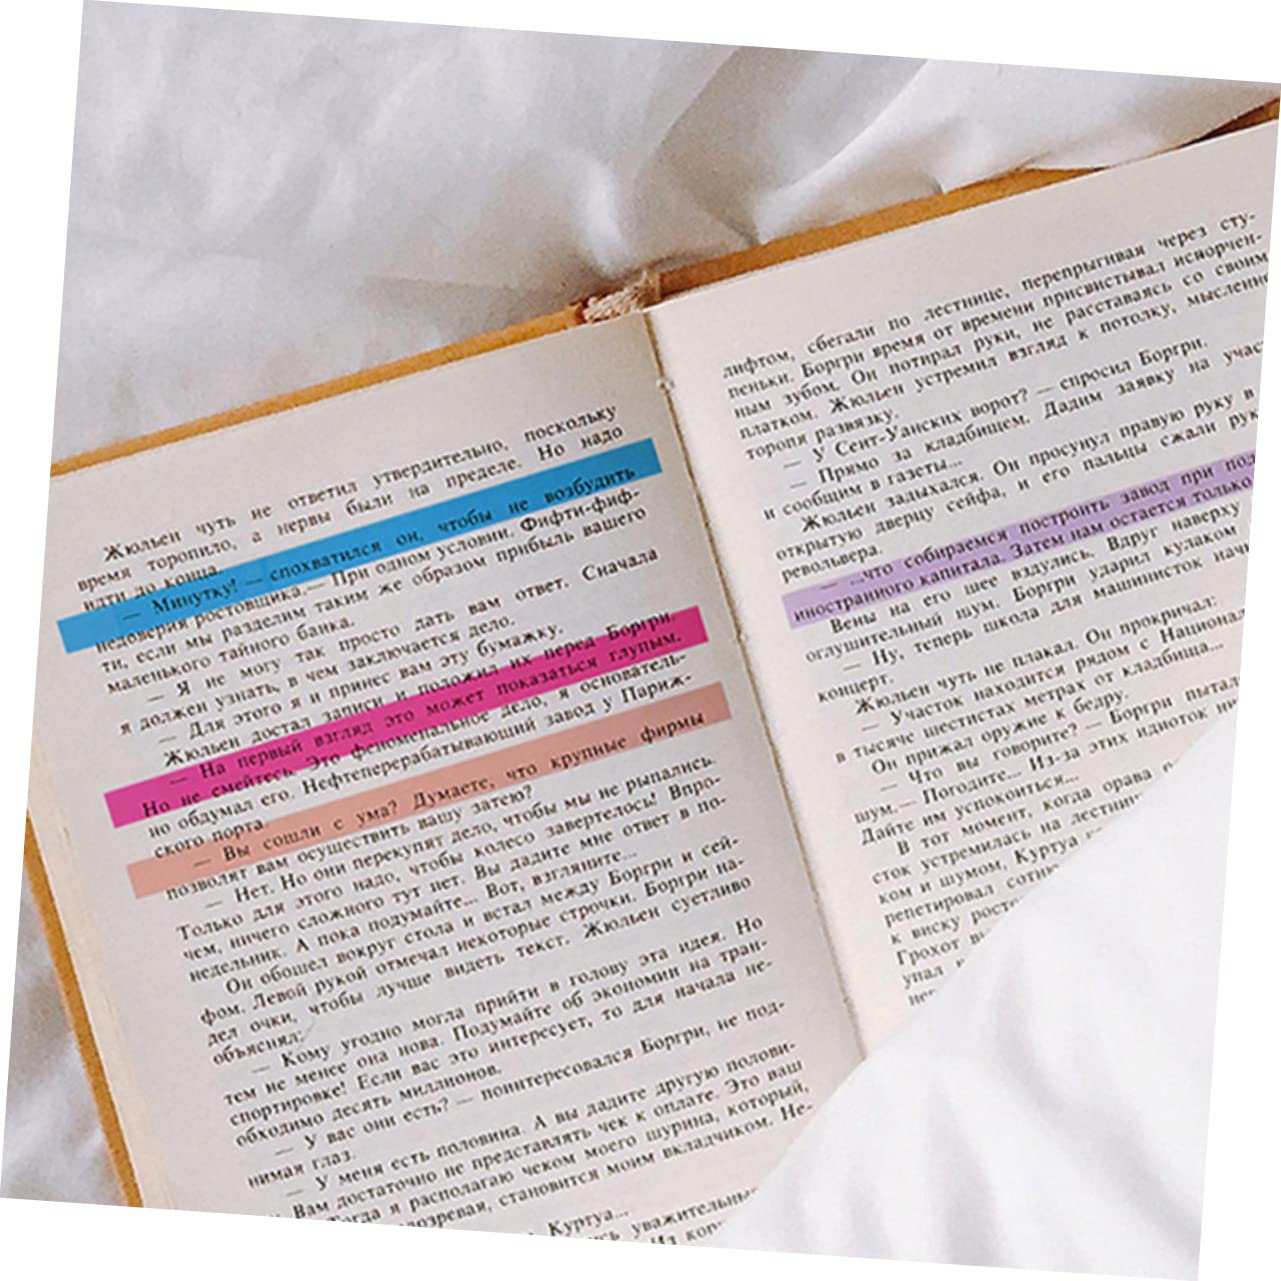 Жюльен чуть не ответил утвердительно, поскольку
время торопило, а нервы были на пределе. Но надо
идти до конца.
— Минутку! — спохватился он, чтобы не возбудить
недоверия ростовщика.— При одном условии. Фифти-фиф-
ти, если мы разделим таким же образом прибыль вашего
маленького тайного банка.
— Я не могу так просто дать вам ответ. Сначала
я должен узнать, в чем заключается дело.
— Для этого я и принес вам эту бумажку.
Жюльен достал записи и положил их перед Боргри.
— На первый взгляд это может показаться глупым.
Но не смейтесь. Это феноменальное дело, я основатель-
но обдумал его. Нефтеперерабатывающий завод у Париж-
ского порта.
— Вы сошли с ума? Думаете, что крупные фирмы
позволят вам осуществить вашу затею?
— Нет. Но они перекупят дело, чтобы мы не рыпались.
Только для этого надо, чтобы колесо завертелось! Впро-
чем, ничего сложного тут нет. Вы дадите мне ответ в по-
недельник. А пока подумайте... Вот, взгляните...
Он обошел вокруг стола и встал между Боргри и сей-
фом. Левой рукой отмечал некоторые строчки. Боргри на-
дел очки, чтобы лучше видеть текст. Жюльен суетливо
объяснял:
— Кому угодно могла прийти в голову эта идея. Но
тем не менее она нова. Подумайте об экономии на тран-
спортировке! Если вас это интересует, то для начала не-
обходимо десять миллионов.
— У вас они есть? — поинтересовался Боргри, не под-
нимая глаз.
— У меня есть половина. А вы дадите другую полови-
Вам достаточно не представлять чек к оплате. Это ваш
Тогда я располагаю чеком моего шурина, который,
становится моим вкладчиком. Не-
Куртуа...
уважительны
Из
лифтом, сбегали по лестнице, перепрыгивая через сту-
пеньки. Боргри время от времени присвистывал испорчен-
ным зубом. Он потирал руки, не расставаясь со своим
платком. Жюльен устремил взгляд к потолку, мысленно
торопя развязку.
— У Сент-Уанских ворот? — спросил Боргри.
— Прямо за кладбищем. Дадим заявку на учас
и сообщим в газеты...
Жюльен задыхался. Он просунул правую руку в
открытую дверцу сейфа, и его пальцы сжали рук
револьвера.
— ...что собираемся построить завод при под
иностранного капитала. Затем нам остается только
Вены на его шее вздулись. Вдруг наверху
оглушительный шум. Боргри ударил кулаком
— Ну, теперь школа для машинисток нач
концерт.
Жюльен чуть не плакал. Он прокричал:
— Участок находится рядом с Национал
в тысяче шестистах метрах от кладбища...
Он прижал оружие к бедру.
— Что вы говорите? — Боргри пытал
шум.— Погодите... Из-за этих идиоток ни
Дайте им успокоиться...
В тот момент, когда орава
сток устремилась на лестни
ком и шумом, Куртуа
репетировал сотн
к виску росто
Грохот вы
упал